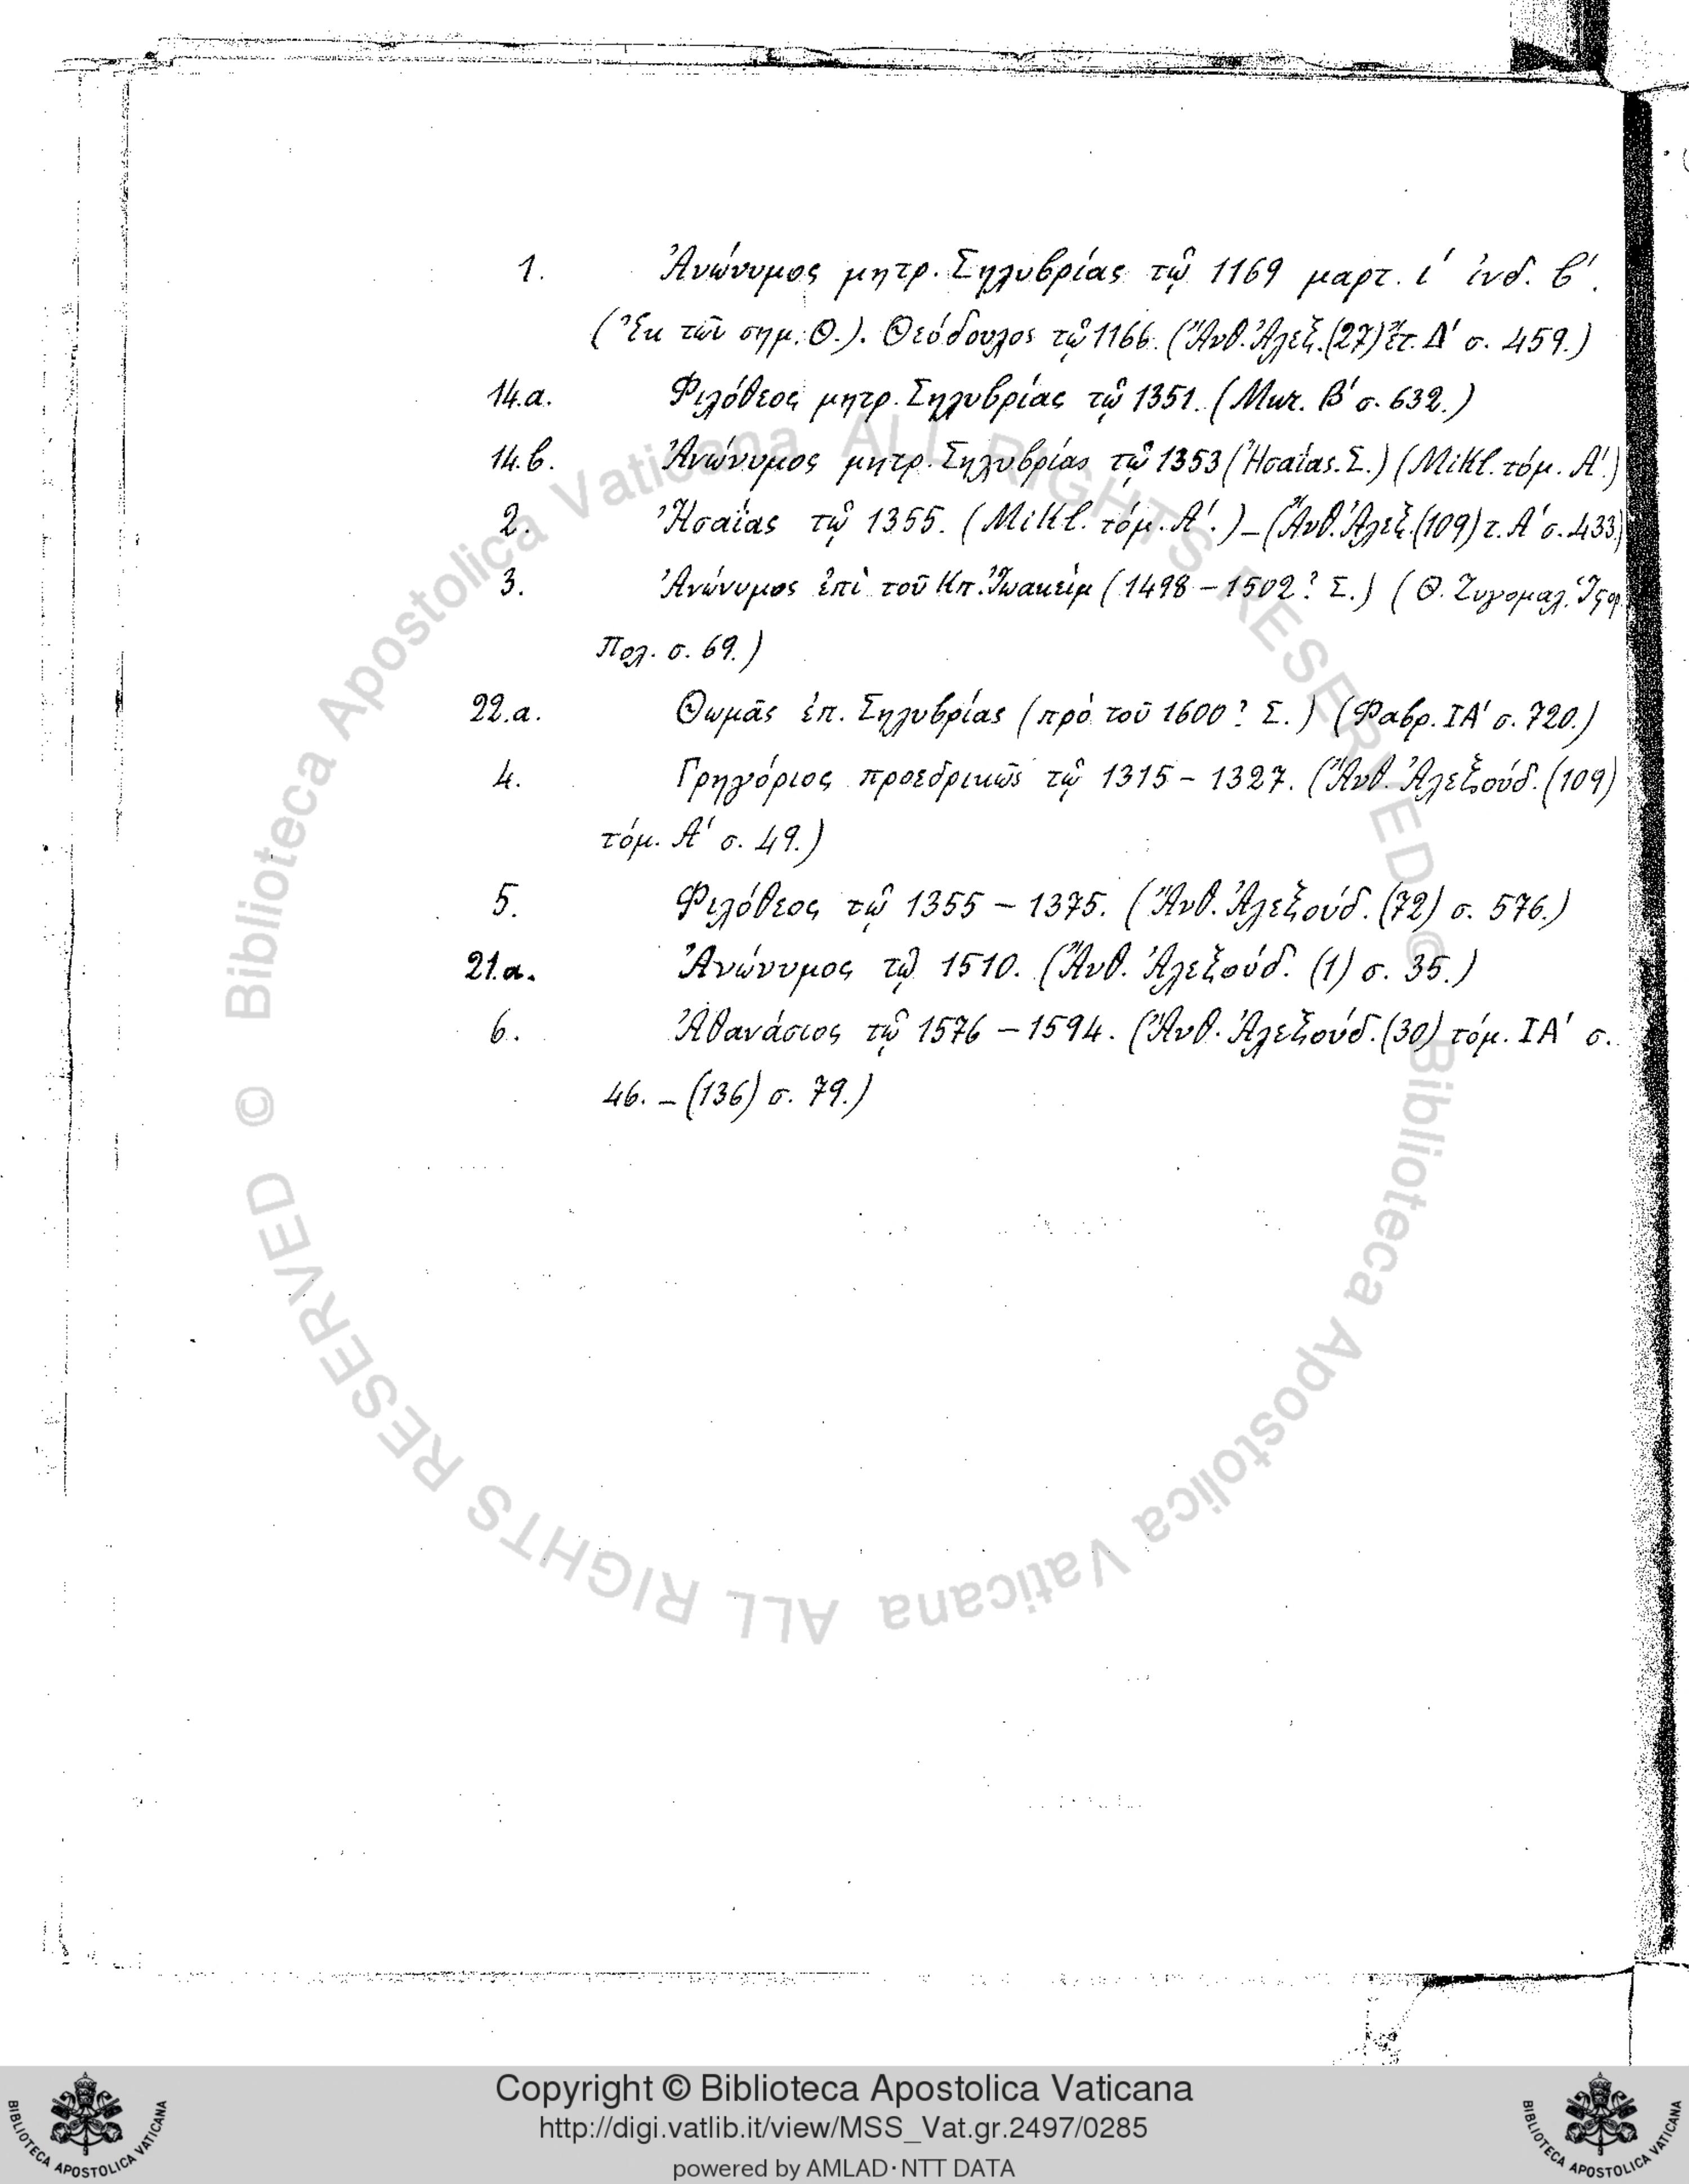 1. Ἀνώνυμος μητρ. Σηλυβρίας τῷ 1169 μαρτ. ι´ ἰνδ. β´.
(Ἐκ τῶν σημ. Θ.). Θεόδουλος τῷ 1166. (Ἀνθ. Ἀλεξ. (27) ἔτ. Δ´ σ. 459.)
14.α. Φιλόθεος μητρ. Σηλυβρίας τῷ 1351. (Μωκ. Β´ σ. 632.)
14.β. Ἀνώνυμος μητρ. Σηλυβρίας τῷ 1353 (Ἡσαΐας. Σ.) (Mikl. τόμ. Α´.)
2. Ἡσαΐας τῷ 1355. (Mikl. τόμ. Α´.) – (Ἀνθ. Ἀλεξ. (109) τ. Α´ σ. 433)
3. Ἀνώνυμος ἐπὶ τοῦ Κπ. Ἰωακεὶμ (1498 – 1502? Σ.) (Θ. Ζυγομαλ. Ἱςορ.
Πολ. σ. 69.)
22.α. Θωμᾶς ἐπ. Σηλυβρίας (πρὸ τοῦ 1600? Σ.) (Φαβρ. ΙΑ´ σ. 720.)
4. Γρηγόριος προεδρικῶς τῷ 1315 – 1327. (Ἀνθ. Ἀλεξούδ. (109)
τόμ. Α´ σ. 49.)
5. Φιλόθεος τῷ 1355 – 1375. (Ἀνθ. Ἀλεξούδ. (72) σ. 576.)
21.α. Ἀνώνυμος τῷ 1510. (Ἀνθ. Ἀλεξούδ. (1) σ. 35.)
6. Ἀθανάσιος τῷ 1576 – 1594. (Ἀνθ. Ἀλεξούδ. (30) τόμ. ΙΑ´ σ.
46. – (136) σ. 79.)
© Biblioteca Apostolica Vaticana ALL RIGHTS RESERVED
© Biblioteca Apostolica Vaticana ALL RIGHTS RESERVED
Copyright © Biblioteca Apostolica Vaticana
http://digi.vatlib.it/view/MSS_Vat.gr.2497/0285
powered by AMLAD·NTT DATA
BIBLIOTECA APOSTOLICA VATICANA
BIBLIOTECA APOSTOLICA VATICANA